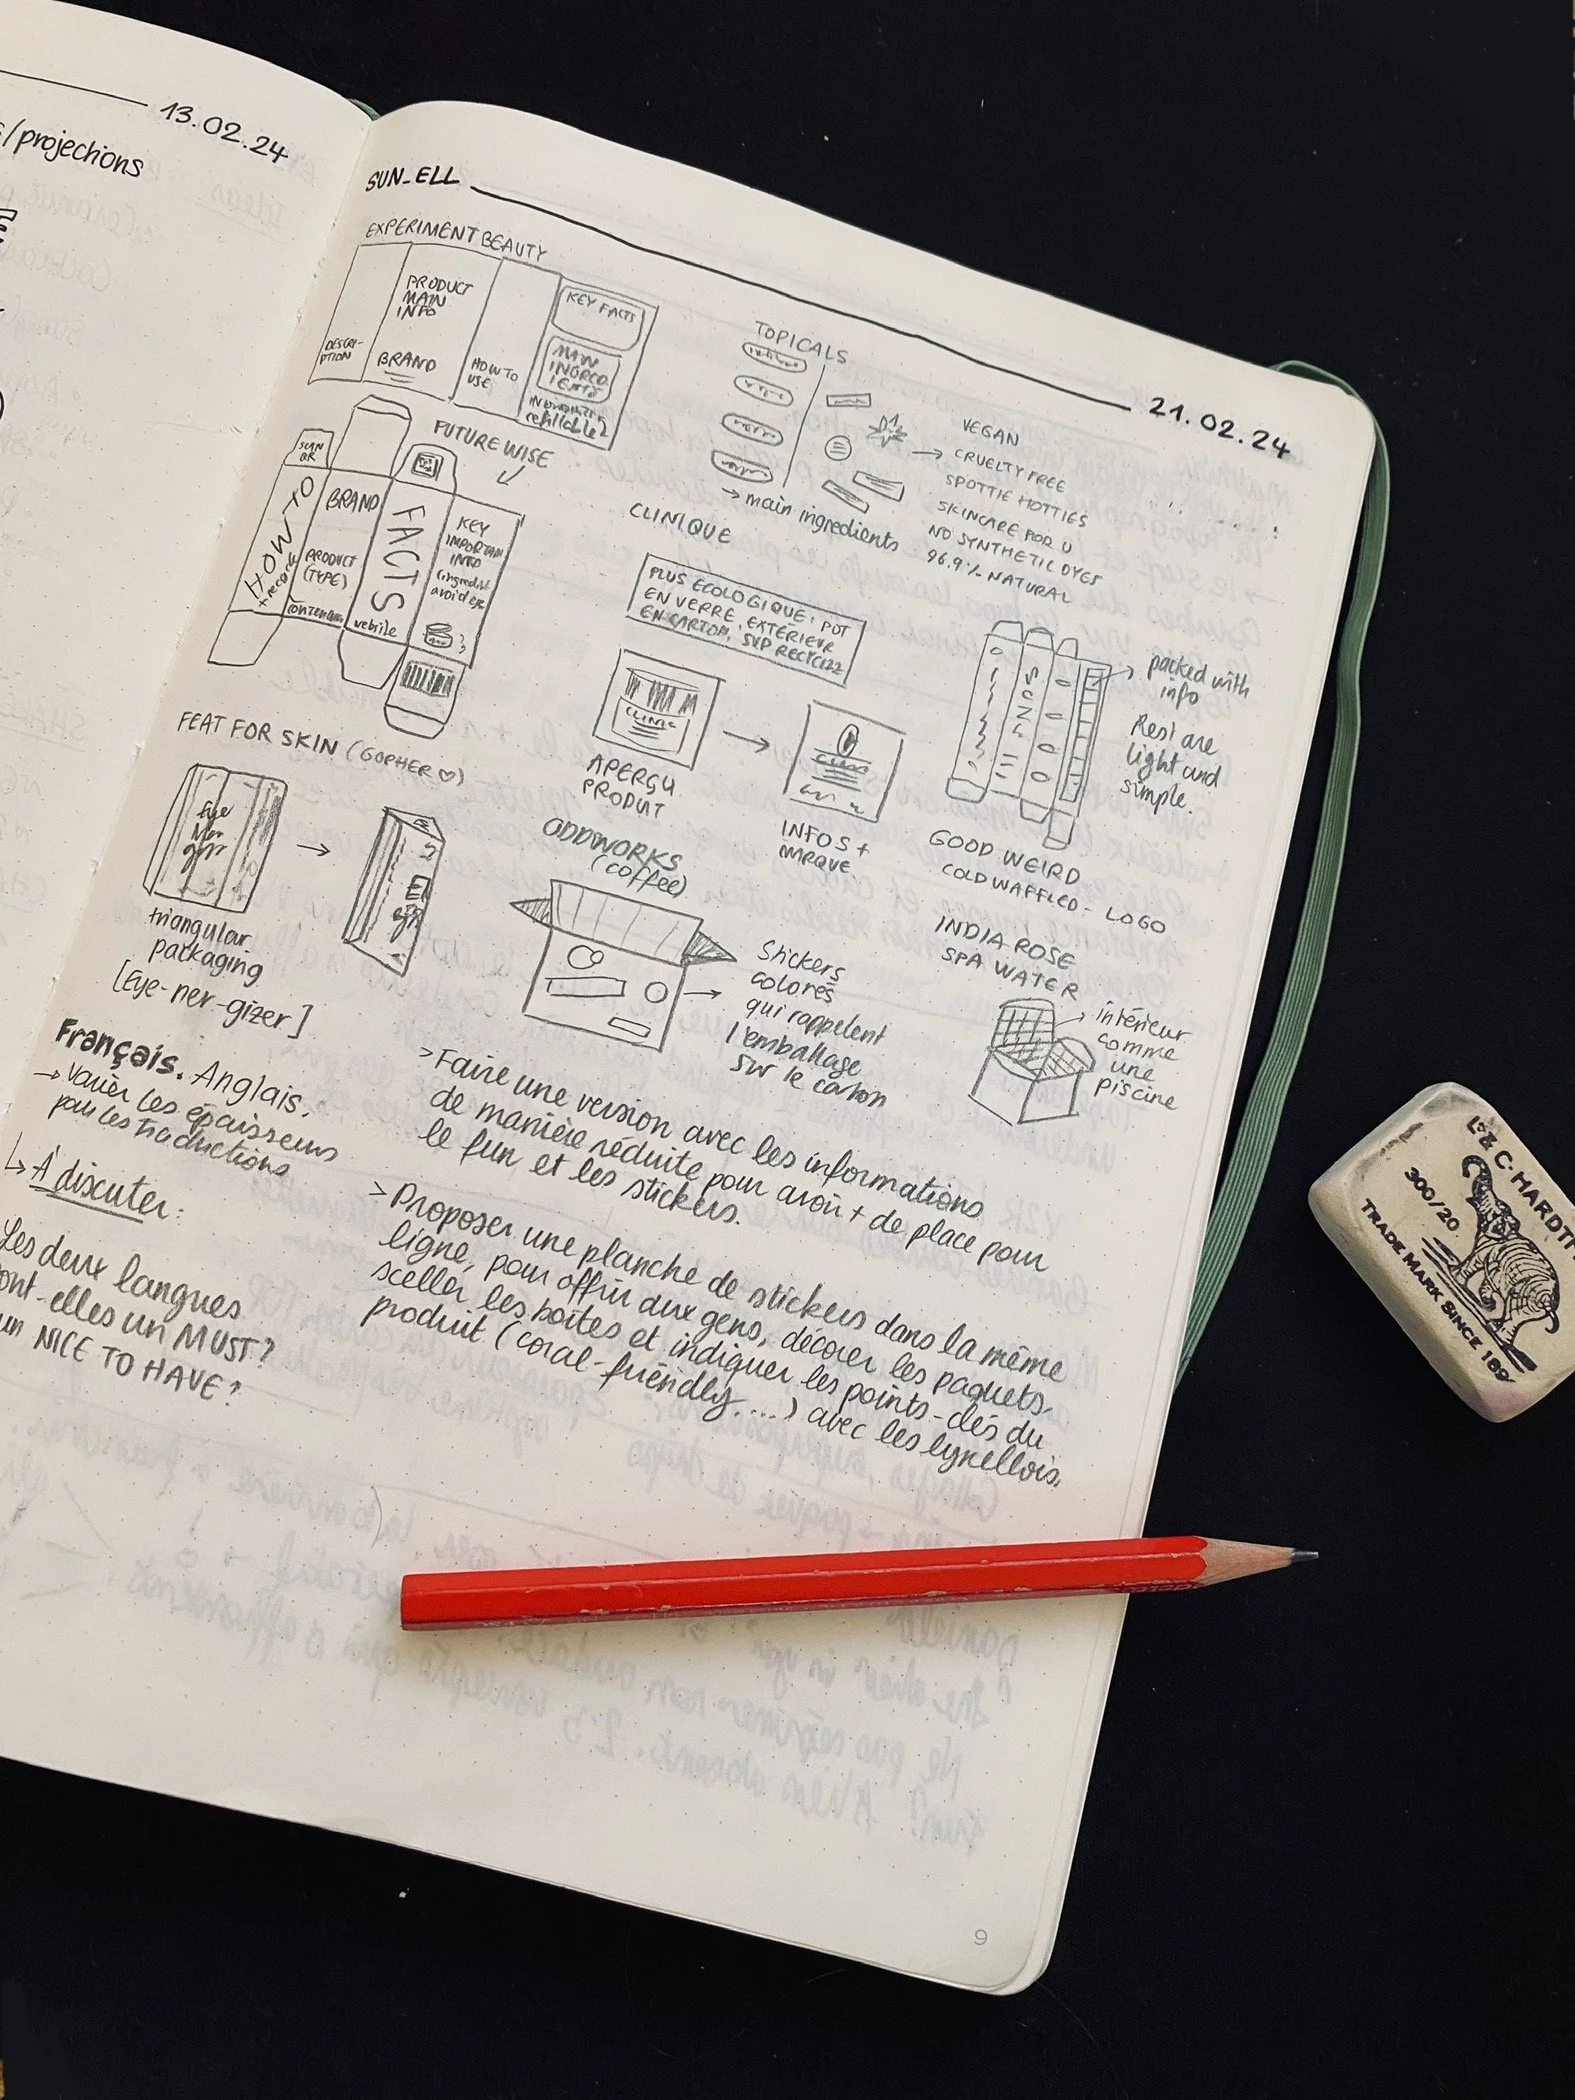 13.02.24
s/projections
SUN_ELL
21.02.24
EXPERIMENT BEAUTY
DESCRI-
PTION
PRODUCT
MAIN
INFO
BRAND
HOW TO
USE
KEY FACTS
MAIN
refillable?
TOPICALS
→ main ingredients
VEGAN
→ CRUELTY FREE
SPOTTIE HOTTIES
SKINCARE FOR U
NO SYNTHETIC DYES
96.9% NATURAL
FUTURE WISE
SCAN
QR
HOW TO
BRAND
PRODUCT
(TYPE)
FACTS
website
KEY
IMPORTAN
INFO
CLINIQUE
PLUS ECOLOGIQUE: POT
EN VERRE, EXTÉRIEUR
EN CARTON, SVP RECYCLEZ
CLINIC
APERÇU
PRODUIT
INFOS +
MARQUE
→ packed with
info
Rest are
light and
simple.
GOOD WEIRD
COLD WAFFLED - LOGO
FEAT FOR SKIN (GOPHER ♡)
Eye
Ner
gizr
triangular
packaging
[Eye-ner-gizer]
ODDWORKS
(coffee)
→ Stickers
colorés
qui rappelent
l'emballage
sur le carton
INDIA ROSE
SPA WATER
→ intérieur
comme
une
piscine
Français. Anglais.
→ varier les épaisseurs
pour les traductions
↳ À discuter:
Les deux langues
ont-elles un MUST?
un NICE TO HAVE?
> Faire une version avec les informations
de manière réduite pour avoir + de place pour
le fun et les stickers.
> Proposer une planche de stickers dans la même
ligne, pour offrir aux gens, décorer les paquets,
sceller les boîtes et indiquer les points-clés du
produit (coral-friendly....) avec les lynellois.
9
L. & C. HARDTM
300/20
TRADE MARK SINCE 189